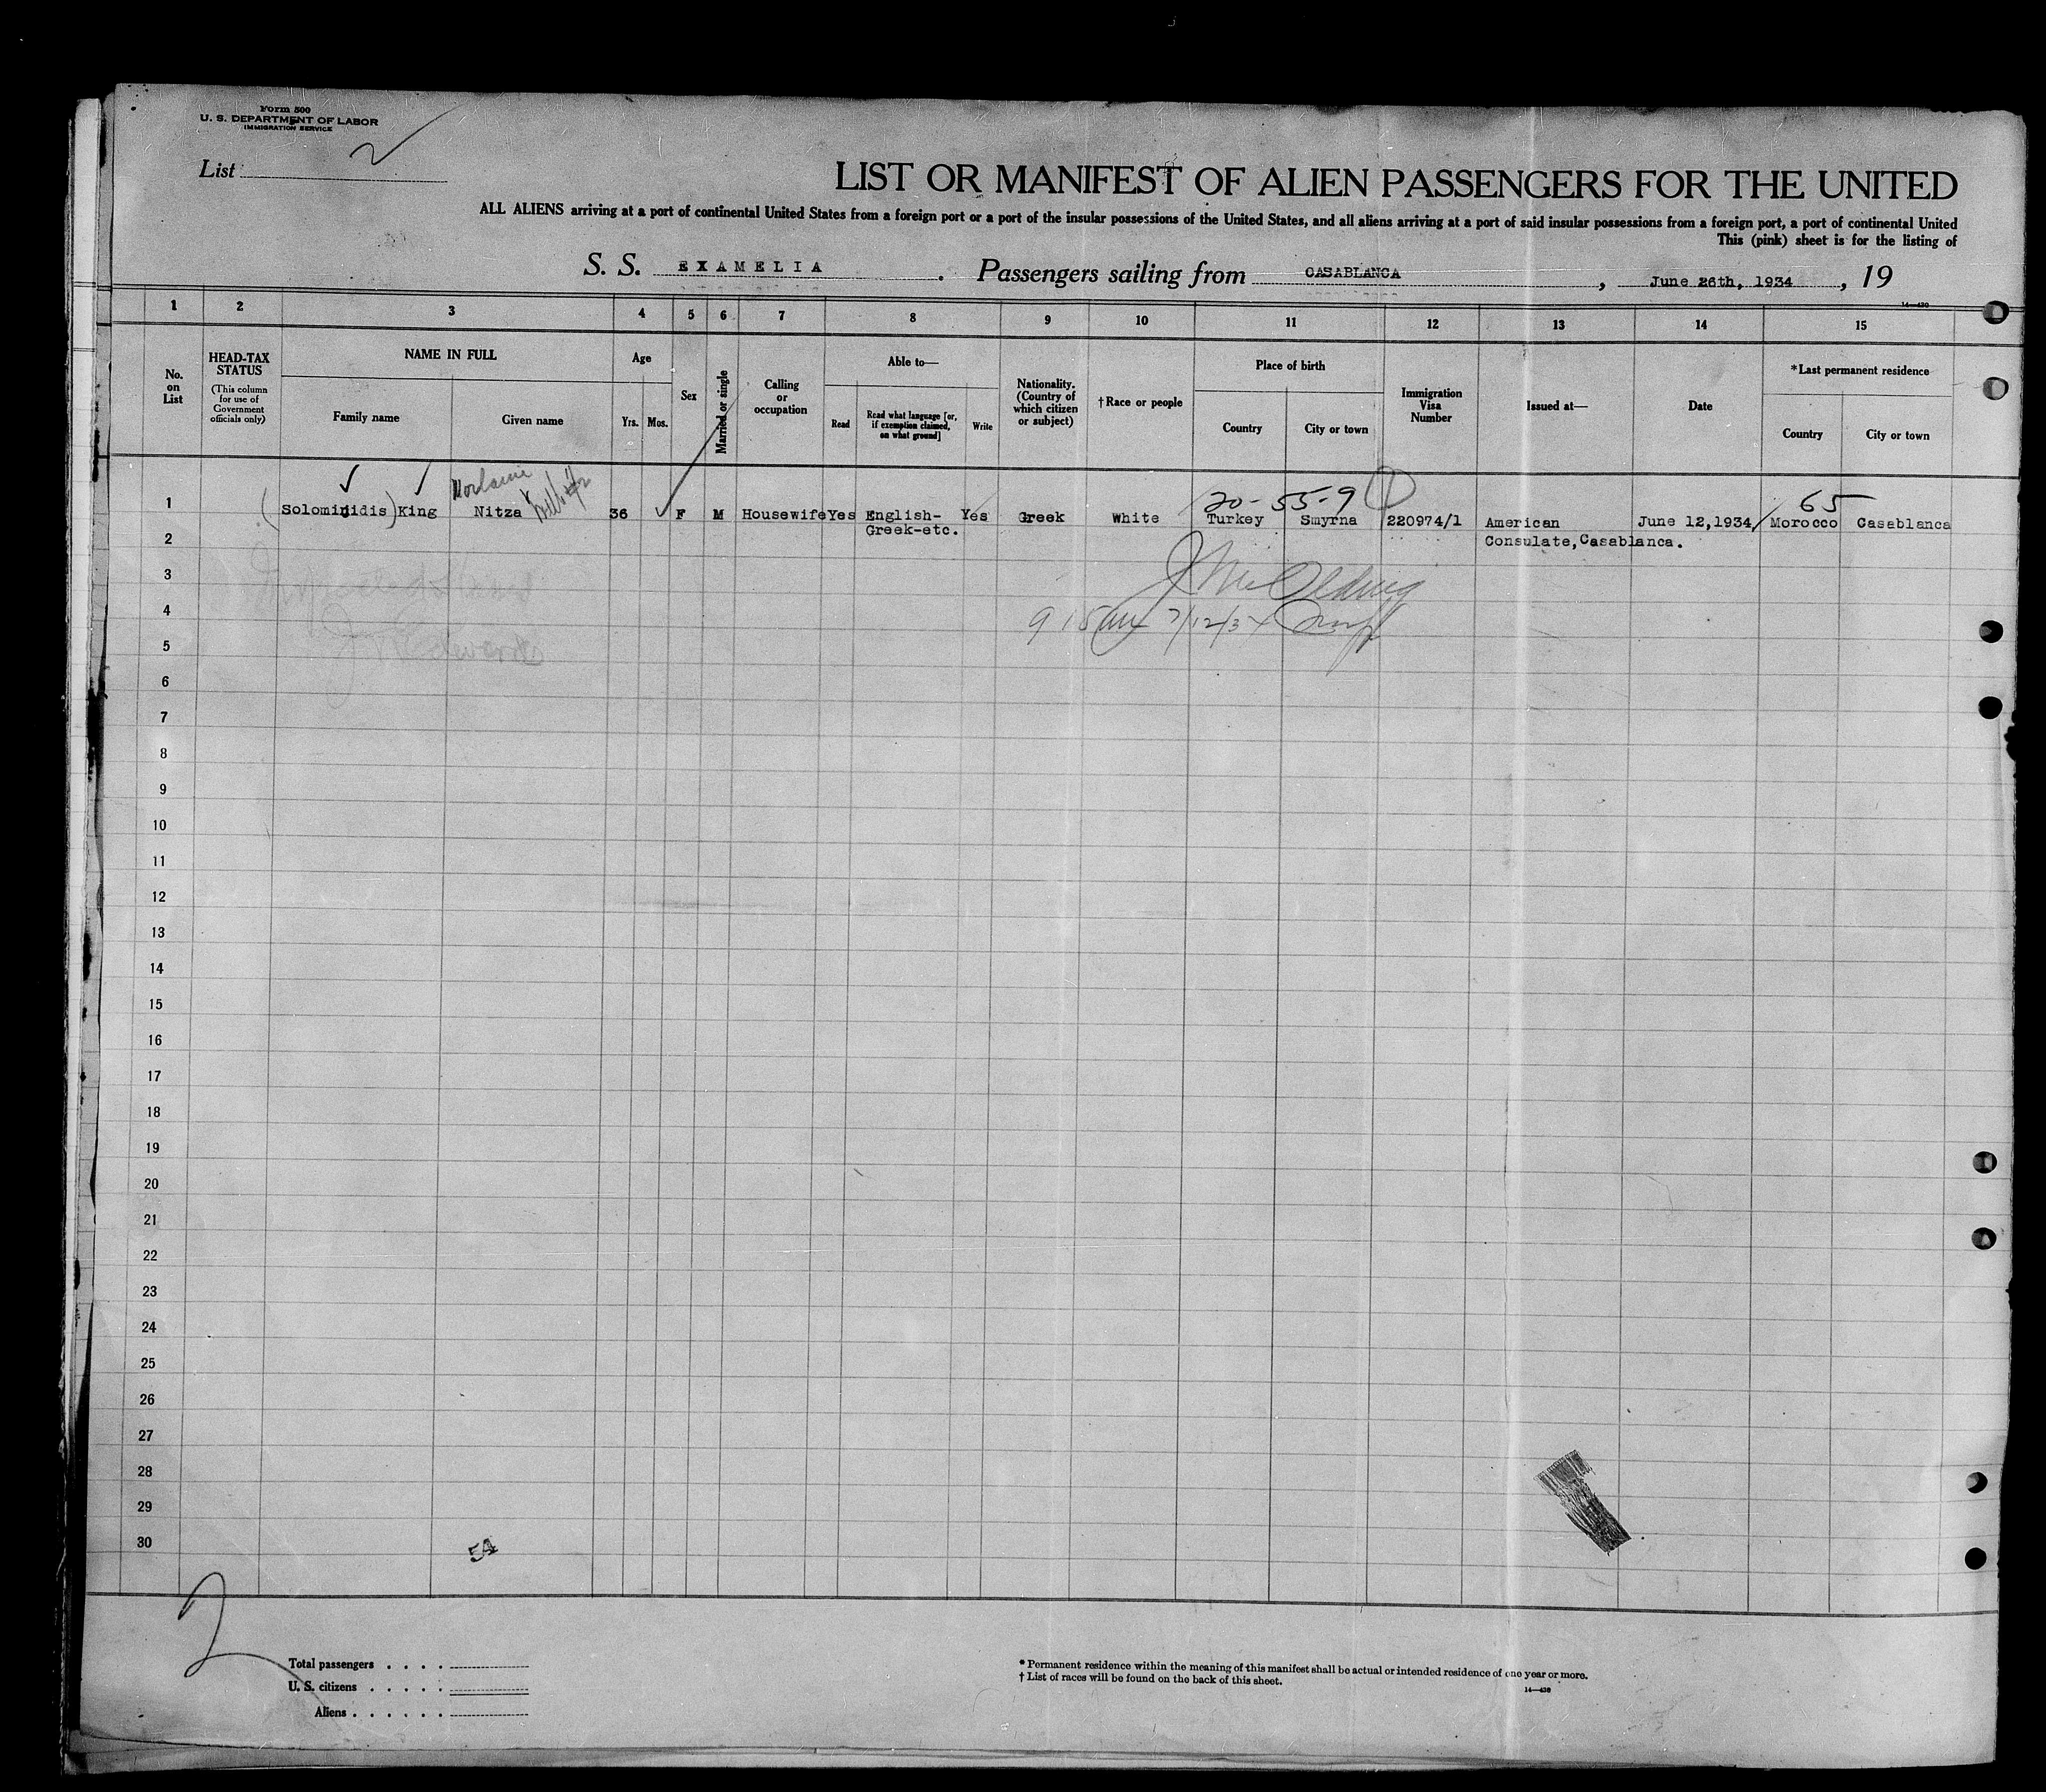 Form 500
U. S. DEPARTMENT OF LABOR
IMMIGRATION SERVICE
List 2
LIST OR MANIFEST OF ALIEN PASSENGERS FOR THE UNITED
ALL ALIENS arriving at a port of continental United States from a foreign port or a port of the insular possessions of the United States, and all aliens arriving at a port of said insular possessions from a foreign port, a port of continental United
This (pink) sheet is for the listing of
S. S. EXAMELIA. Passengers sailing from CASABLANCA, June 26th, 1934, 19
14—430
1 2 3 4 5 6 7 8 9 10 11 12 13 14 15
No. on List
HEAD-TAX STATUS
(This column for use of Government officials only)
NAME IN FULL
Family name
Given name
Age
Yrs.
Mos.
Sex
Married or single
Calling or occupation
Able to—
Read
Read what language [or, if exemption claimed, on what ground]
Write
Nationality. (Country of which citizen or subject)
†Race or people
Place of birth
Country
City or town
Immigration Visa Number
Issued at—
Date
*Last permanent residence
Country
City or town
20-55-9 1 65
1 (Solominidis) King Nitza 36 F M Housewife Yes English- Yes Greek White Turkey Smyrna 220974/1 American June 12,1934 Morocco Casablanca
Greek-etc.
Consulate, Casablanca.
2
3
4
9 15 AM 7/12/34
5
6
7
8
9
10
11
12
13
14
15
16
17
18
19
20
21
22
23
24
25
26
27
28
29
30
54
2
Total passengers . . . .
U. S. citizens . . . . .
Aliens . . . . . .
* Permanent residence within the meaning of this manifest shall be actual or intended residence of one year or more.
† List of races will be found on the back of this sheet.
14—430